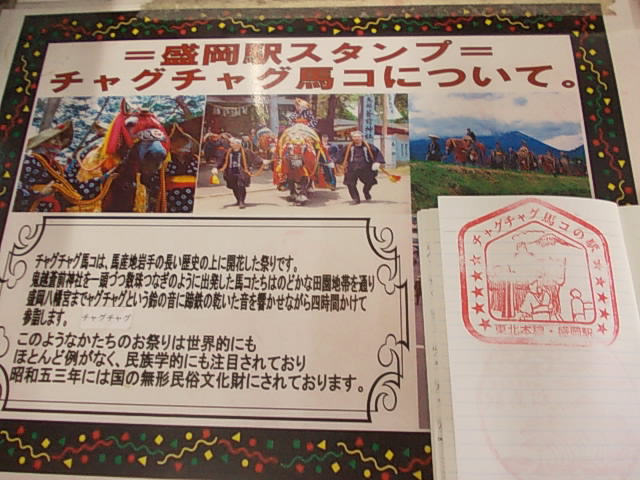 ＝盛岡駅スタンプ＝
チャグチャグ馬コについて。
チャグチャグ馬コは、馬産地岩手の長い歴史の上に開花した祭りです。
鬼越蒼前神社を一頭づつ数珠つなぎのように出発した馬コたちはのどかな田園地帯を通り
盛岡八幡宮までチャグチャグという鈴の音に蹄鉄の乾いた音を響かせながら四時間かけて
参詣します。
チャグチャグ
このようなかたちのお祭りは世界的にも
ほとんど例がなく、民族学的にも注目されており
昭和五三年には国の無形民俗文化財にされております。
チャグチャグ馬コの駅
東北本線・盛岡駅